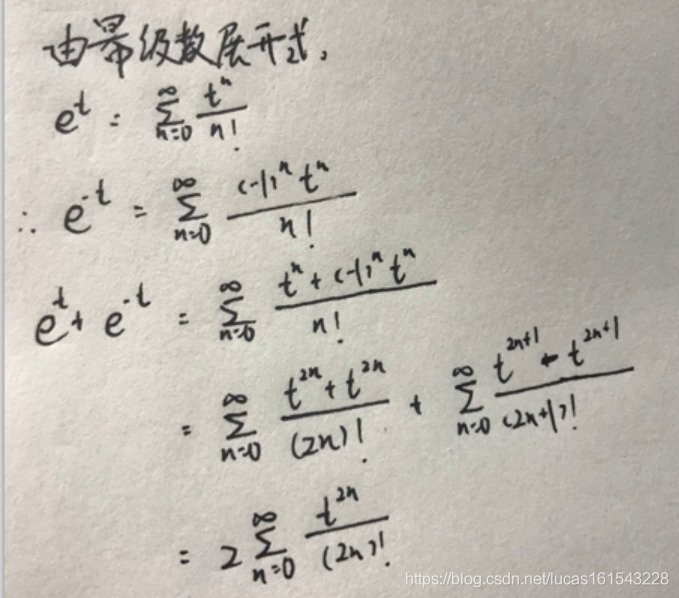 由幂级数展开式,
e^t = ∑_{n=0}^{∞} t^n / n!
∴ e^{-t} = ∑_{n=0}^{∞} (-1)^n t^n / n!
e^t + e^{-t} = ∑_{n=0}^{∞} (t^n + (-1)^n t^n) / n!
= ∑_{n=0}^{∞} (t^{2n} + t^{2n}) / (2n)! + ∑_{n=0}^{∞} (t^{2n+1} - t^{2n+1}) / (2n+1)!
= 2 ∑_{n=0}^{∞} t^{2n} / (2n)!
https://blog.csdn.net/lucas161543228